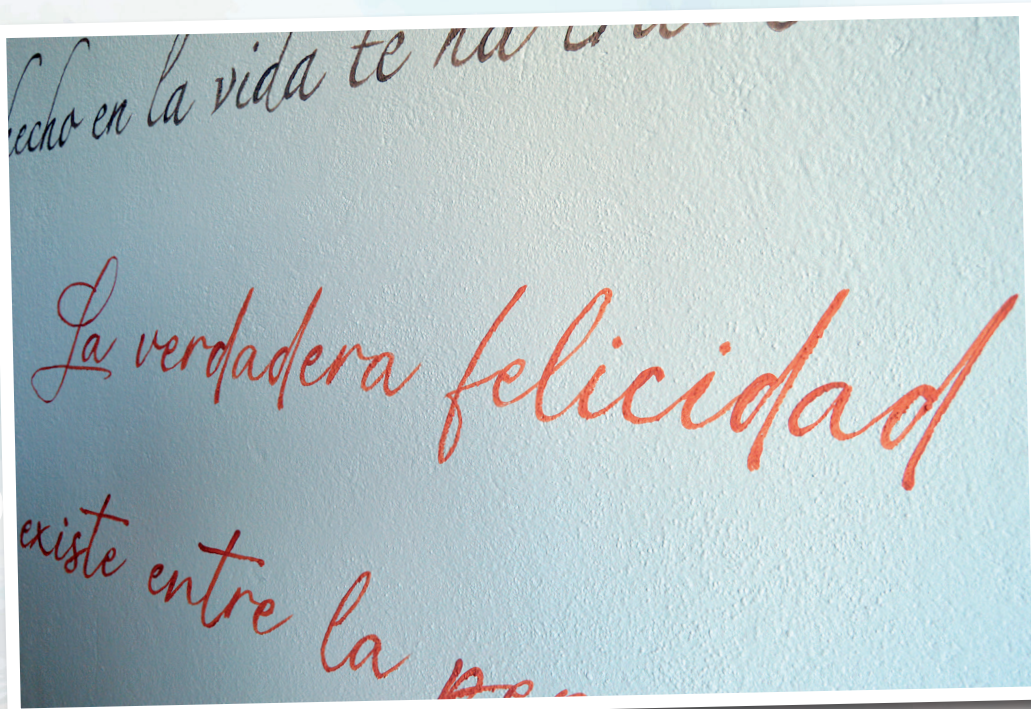 en la vida te ha
La verdadera felicidad
existe entre la